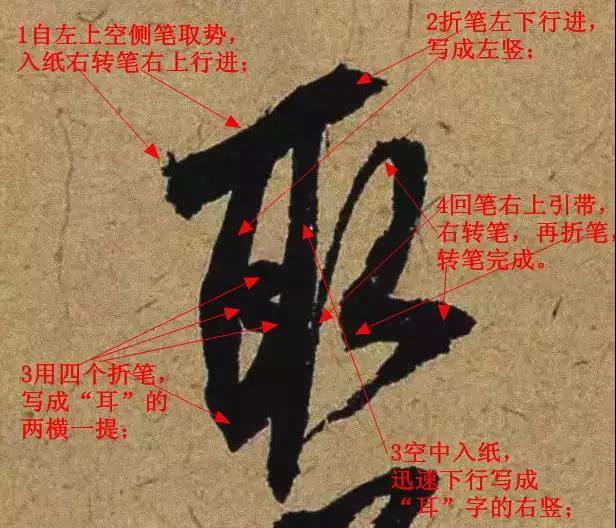 1自左上空侧笔取势，
入纸右转笔右上行进；
2折笔左下行进，
写成左竖；
取
4回笔右上引带，
右转笔，再折笔，
转笔完成。
3用四个折笔，
写成“耳”的
两横一提；
3空中入纸，
迅速下行写成
“耳”字的右竖；